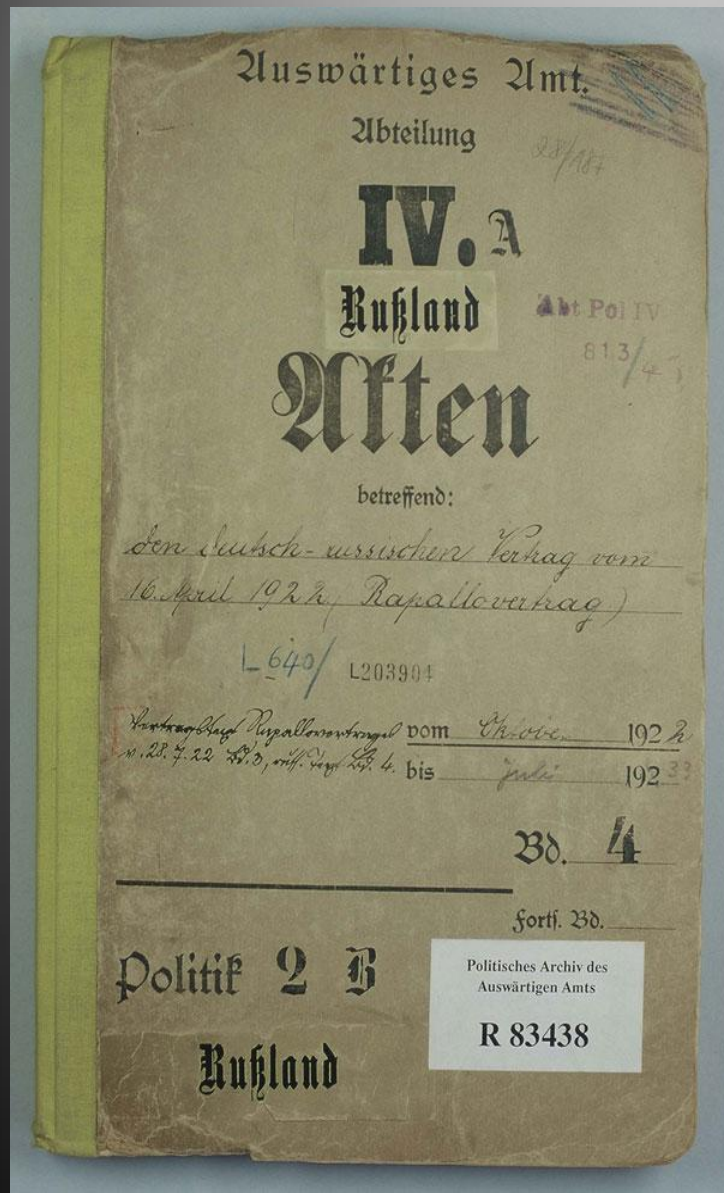 Auswärtiges Amt.
Abteilung
28/187
IV. A
Rußland
Abt Pol IV
813/4
Akten
betreffend:
den deutsch-russischen Vertrag vom
16. April 1922 (Rapallovertrag)
L 640/ L203904
Rapallovertrages vom Oktober 1922
v. 28.7.22 Bd. 3, russ. Text Bd. 4. bis Juli 1933
Bd. 4
Forts. Bd.
Politik 2 B
Politisches Archiv des
Auswärtigen Amts
R 83438
Rußland